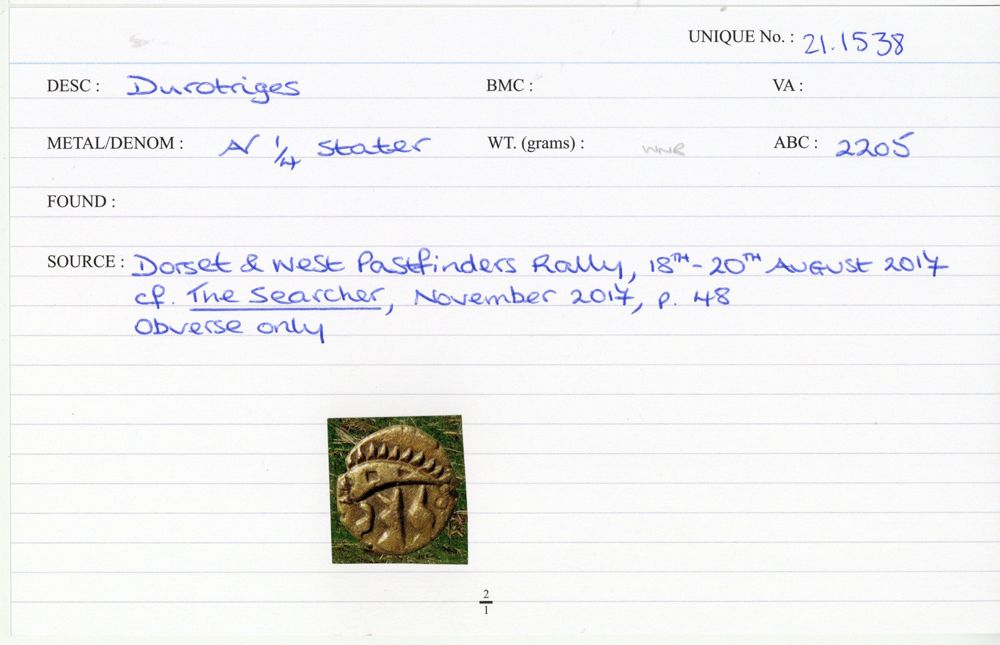 UNIQUE No. : 21.1538
DESC : Durotriges BMC : VA :
METAL/DENOM : AV 1/4 stater WT. (grams) : WNR ABC : 2205
FOUND :
SOURCE : Dorset & West Pastfinders Rally, 18TH-20TH AUGUST 2017
cf. The Searcher, November 2017, p. 48
Obverse only
2
1